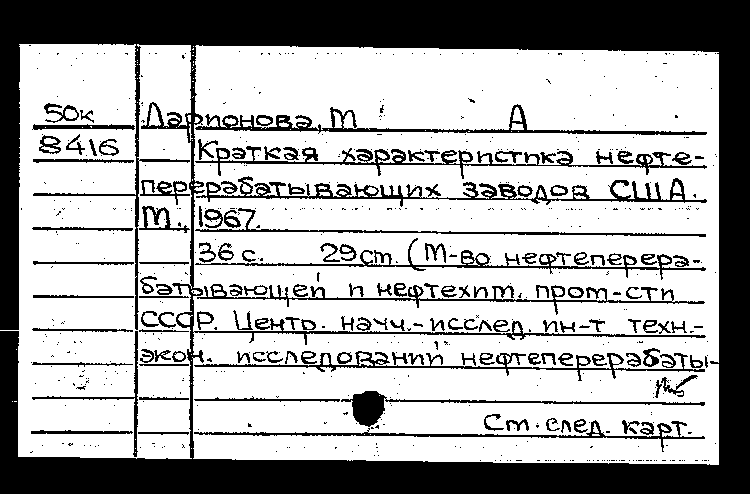 50к Ларионова, М А
8416 Краткая характеристика нефте-
перерабатывающих заводов США.
М., 1967.
36 с. 29 см. (М-во нефтеперера-
батывающей и нефтехим. пром-сти
СССР. Центр. науч.-исслед. ин-т техн.-
экон. исследований нефтеперерабаты-
См. след. карт.